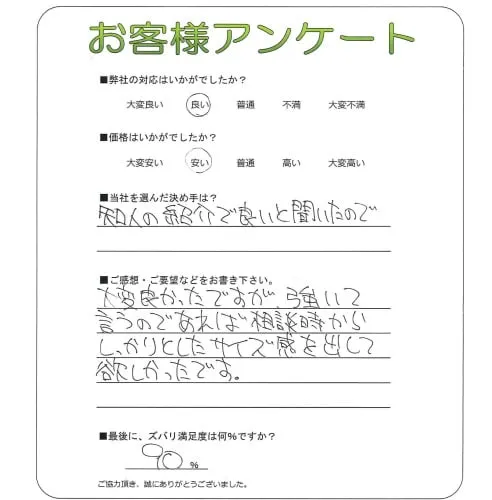 お客様アンケート
■弊社の対応はいかがでしたか?
大変良い 良い 普通 不満 大変不満
■価格はいかがでしたか?
大変安い 安い 普通 高い 大変高い
■当社を選んだ決め手は?
知人の紹介で良いと聞いたので
■ご感想・ご要望などをお書き下さい。
大変良かったですが、強いて
言うのであれば相談時から
しっかりとしたサイズ感を出して
欲しかったです。
■最後に、ズバリ満足度は何%ですか?
90 %
ご協力頂き、誠にありがとうございました。